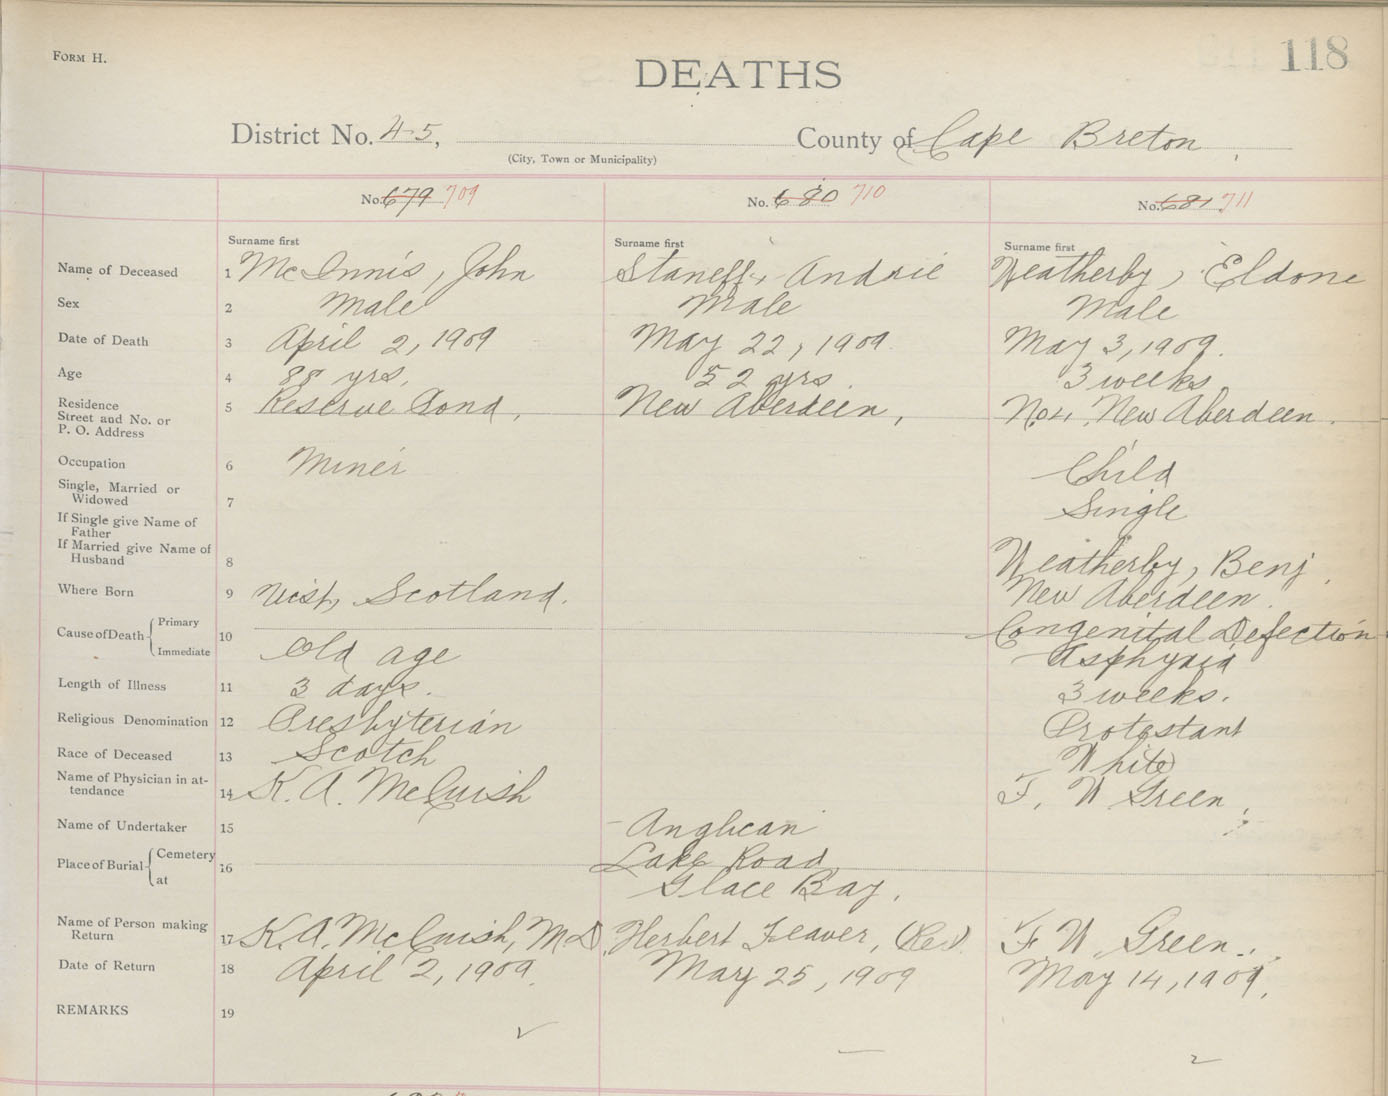 FORM H.
118
DEATHS
District No. 45, County of Cape Breton,
(City, Town or Municipality)
No. 679 709 No. 680 710 No. 681 711
Surname first Surname first Surname first
Name of Deceased 1 McInnis, John Staneff, Andrie Weatherby, Eldone
Sex 2 Male Male Male
Date of Death 3 April 2, 1909 May 22, 1909 May 3, 1909.
Age 4 88 yrs. 52 yrs. 3 weeks
Residence
Street and No. or 5 Reserve Cond. New Aberdeen, No 4, New Aberdeen.
P. O. Address
Occupation 6 Miner Child
Single, Married or
Widowed 7 Single
If Single give Name of
Father
If Married give Name of
Husband 8 Weatherby, Benj.
Where Born 9 Uist, Scotland. New Aberdeen.
Cause of Death Primary 10 Congenital Defection
Immediate Old age Asphyxia
Length of Illness 11 3 days. 3 weeks.
Religious Denomination 12 Presbyterian Protestant
Race of Deceased 13 Scotch White
Name of Physician in at-
tendance 14 K. A. McCuish F. W Green,
Name of Undertaker 15 Anglican
Place of Burial Cemetery 16 Lake Road
at Glace Bay.
Name of Person making
Return 17 K. A. McCuish, M.D. Herbert Feaver, (Rev). F W. Green.
Date of Return 18 April 2, 1909. May 25, 1909 May 14, 1909.
REMARKS 19